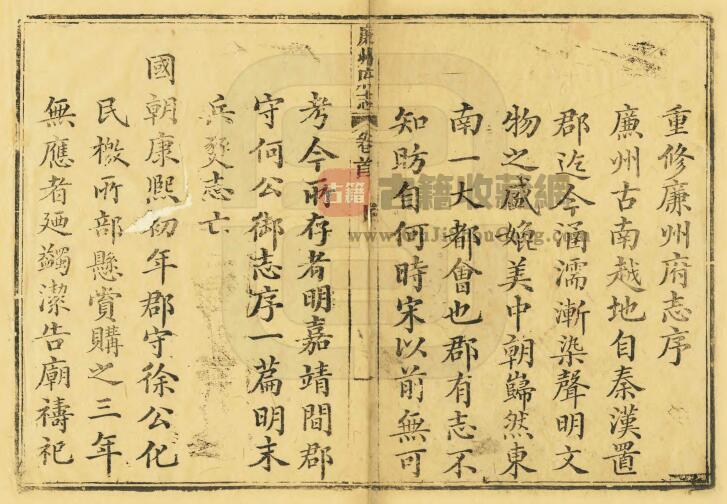 重修廉州府志序
廉州古南越地自秦漢置
郡迄今涵濡漸染聲明文
物之盛媲美中朝巋然東
南一大都會也郡有志不
知昉自何時宋以前無可
廉州府志 卷首 序 一
考今所存者明嘉靖間郡
守何公御志序一篇明末
兵燹志亡
國朝康熙初年郡守徐公化
民檄所部懸賞購之三年
無應者廼蠲潔告廟禱祀
古籍 古籍收藏網